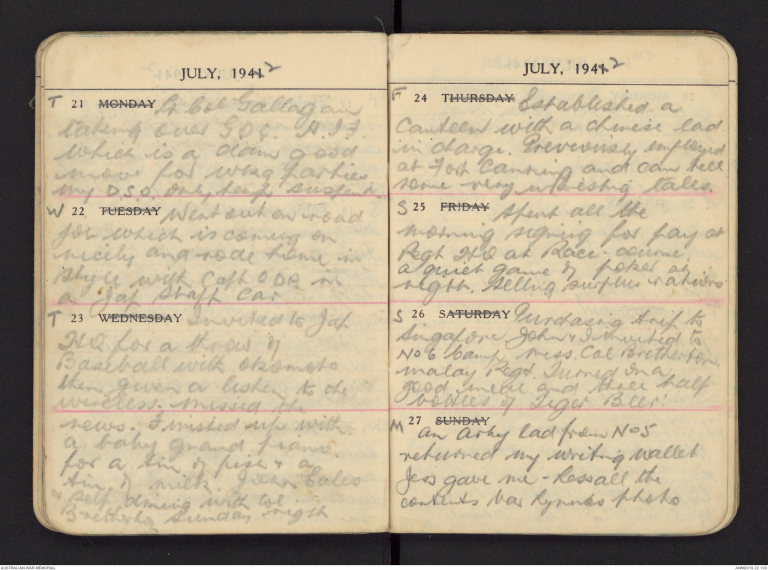 JULY, 1941 2
T 21 MONDAY Lt Col Gallagan
taking over GOC. AIF.
which is a damn good
move for wkg parties
my D.S.O. only temp suspent.
W 22 TUESDAY Went out on road
job which is coming on
nicely and rode home in
style with Capt ODA in
a Jap Staff Car
T 23 WEDNESDAY Invited to Jap
HQ for a throw of
Baseball with Okomoto
then given a listen to the
wireless. missed the
news. Finished up with
a baby grand piano.
for a tin of fish & a
tin of milk. John Eales
& self dining with Col
Bretherton Sunday night
JULY, 1941 2
F 24 THURSDAY Established a
Canteen with a chinese lad
in charge. Previously employed
at Fort Canning and can tell
some very interestig tales.
S 25 FRIDAY Spent all the
morning signing for pay at
Regt HQ at Race-course.
a quiet game of poker at
night. Selling surplus rations
S 26 SATURDAY Purchasing trip to
Singapore John & I invited to
No 6 Camp mess. Col Bretherton.
malay Regt. Turned on a
good meal and three half
bottles of Tiger Beer.
M 27 SUNDAY
an Army lad from No 5
returned my writing wallet
Jess gave me - less all the
contents bar Kynnes photo
AUSTRALIAN WAR MEMORIAL